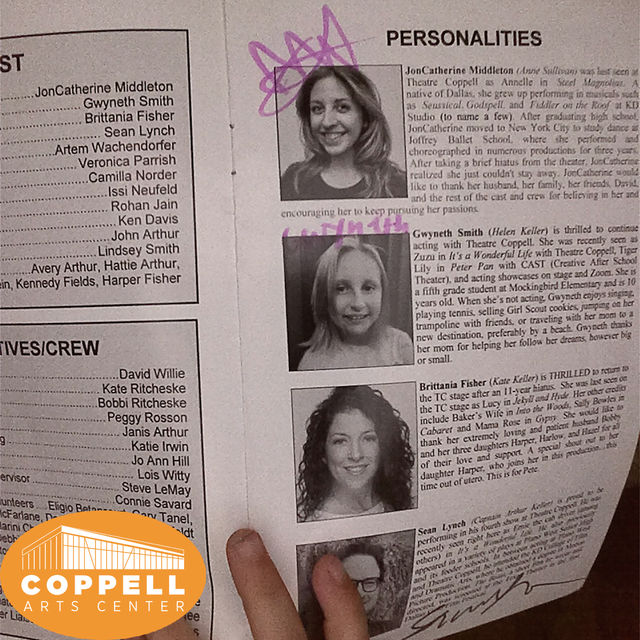 ST
JonCatherine Middleton
Gwyneth Smith
Brittania Fisher
Sean Lynch
Artem Wachendorfer
Veronica Parrish
Camilla Norder
Issi Neufeld
Rohan Jain
Ken Davis
John Arthur
Lindsey Smith
Avery Arthur, Hattie Arthur,
ein, Kennedy Fields, Harper Fisher
TIVES/CREW
David Willie
Kate Ritcheske
Bobbi Ritcheske
Peggy Rosson
Janis Arthur
Katie Irwin
Jo Ann Hill
ervisor Lois Witty
Steve LeMay
Connie Savard
unteers Eligio
Gary Tanel,
COPPELL
ARTS CENTER
PERSONALITIES
JonCatherine Middleton (Anne Sullivan) was last seen at
Theatre Coppell as Annelle in Steel Magnolias. A
native of Dallas, she grew up performing in musicals such
as Seussical, Godspell, and Fiddler on the Roof at KD
Studio (to name a few). After graduating high school,
JonCatherine moved to New York City to study dance at
Joffrey Ballet School, where she performed and
choreographed in numerous productions for three years.
After taking a brief hiatus from the theater, JonCatherine
realized she just couldn't stay away. JonCatherine would
like to thank her husband, her family, her friends, David,
and the rest of the cast and crew for believing in her and
encouraging her to keep pursuing her passions.
Gwyneth
Gwyneth Smith (Helen Keller) is thrilled to continue
acting with Theatre Coppell. She was recently seen as
Zuzu in It's a Wonderful Life with Theatre Coppell, Tiger
Lily in Peter Pan with CAST (Creative After School
Theater), and acting showcases on stage and Zoom. She is
a fifth grade student at Mockingbird Elementary and is 10
years old. When she's not acting, Gwyneth enjoys singing,
playing tennis, selling Girl Scout cookies, jumping on her
trampoline with friends, or traveling with her mom to a
new destination, preferably by a beach. Gwyneth thanks
her mom for helping her follow her dreams, however big
or small.
Brittania Fisher (Kate Keller) is THRILLED to return to
the TC stage after an 11-year hiatus. She was last seen on
the TC stage as Lucy in Jekyll and Hyde. Her other credits
include Baker's Wife in Into the Woods, Sally Bowles in
Cabaret and Mama Rose in Gypsy. She would like to
thank her extremely loving and patient husband Bobby
and her three daughters Harper, Harlow, and Hazel for all
of their love and support. A special shout out to her
daughter Harper, who joins her in this production...this
time out of utero. This is for Pete.
Sean Lynch (Captain Arthur Keller) is proud to be
performing in his fourth show at Theatre Coppell. He was
recently seen right here as
others) in It's a Wonderful Life.
appeared in a variety of plays at Plano West Senior High